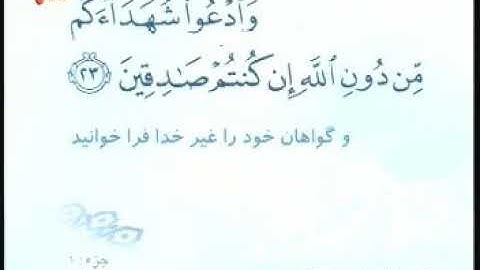 وَٱدْعُوا۟ شُهَدَآءَكُم
مِّن دُونِ ٱللَّهِ إِن كُنتُمْ صَـٰدِقِينَ ﴿٢٣﴾
و گواهان خود را غیر خدا فرا خوانید
جزء: ۱